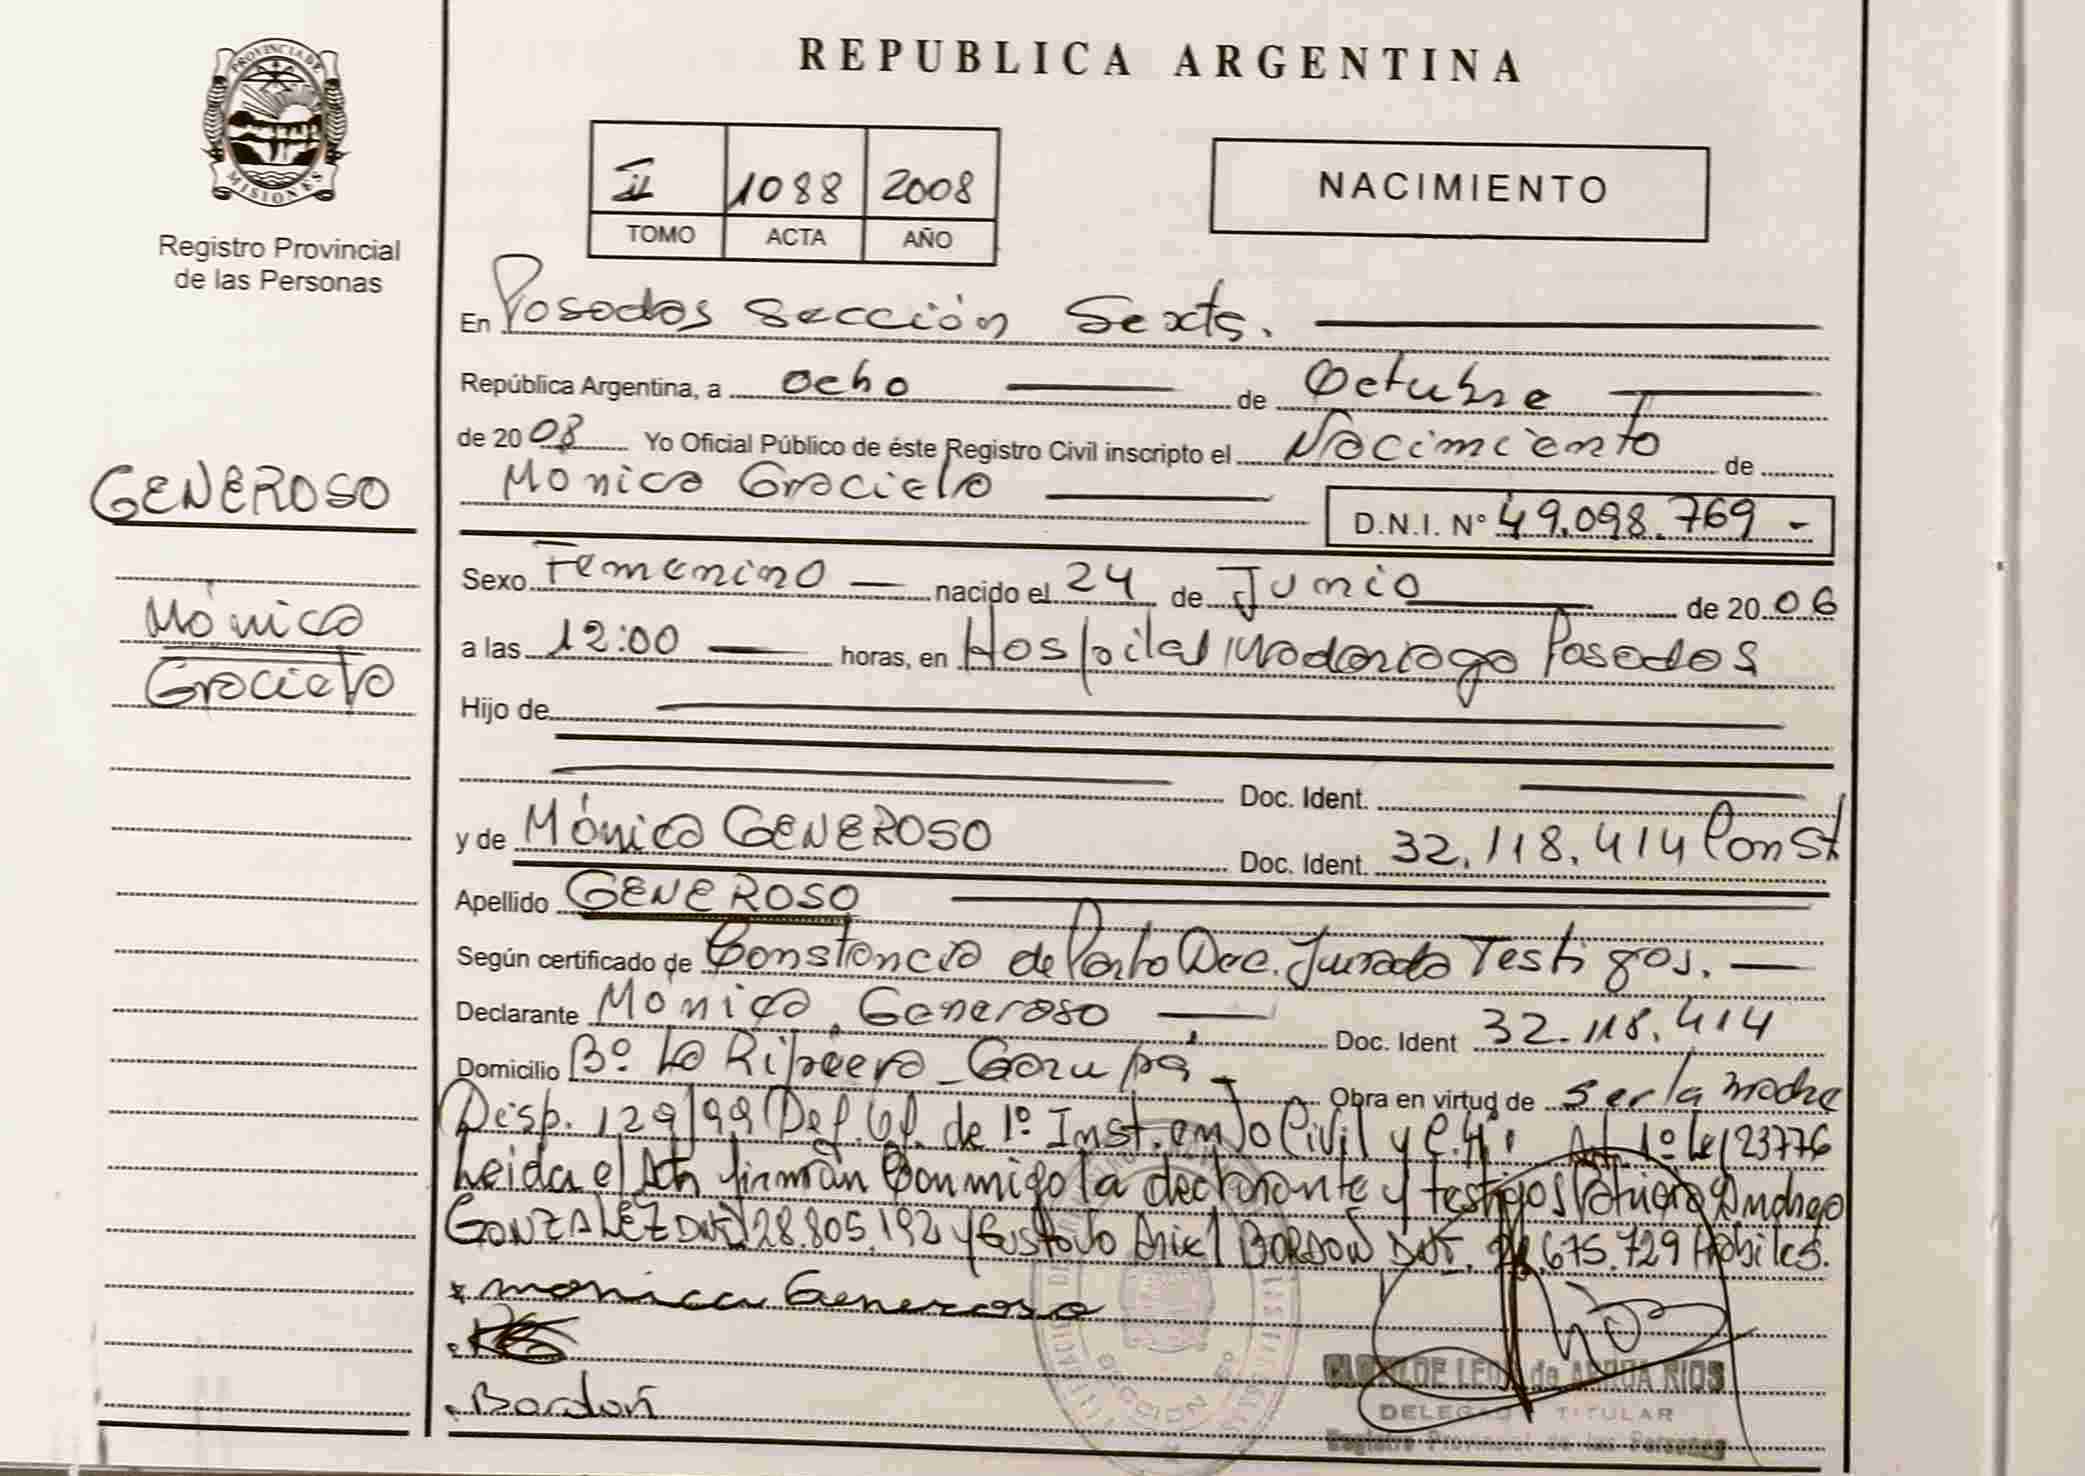 PROVINCIA DE
MISIONES
Registro Provincial
de las Personas
GENEROSO
Mónica
Graciela
REPUBLICA ARGENTINA
II 1088 2008
TOMO ACTA AÑO
NACIMIENTO
En Posadas Sección Sexta.
República Argentina, a ocho de Octubre
de 2008 Yo Oficial Público de éste Registro Civil inscripto el Nacimiento de
Mónica Graciela D.N.I. N° 49.098.769 -
Sexo Femenino nacido el 24 de Junio de 20 06
a las 12:00 horas, en Hospital Madariaga Posadas
Hijo de
Doc. Ident.
y de Mónica GENEROSO Doc. Ident. 32.118.414 Const
Apellido GENEROSO
Según certificado de Constancia de Parto Dec. Jurada Testigos.
Declarante Mónica Generoso Doc. Ident 32.118.414
Domicilio B° La Ribera - Garupá - Obra en virtud de ser la madre
Disp. 129/99 Def. Of. de 1° Inst. en lo Civil y C. Art. 1° Ley 23776
Leida el Acta firman Conmigo la declarante y testigos Andrea
GONZALEZ DNI 28.805.192 y Gustavo Ariel BORDON DNI. 675.729 Hábiles.
x monica Generoso
Bordon
SECCION 6°
CLOTILDE LEON de ARRUA RIOS
DELEGADA TITULAR
Registro Provincial de las Personas